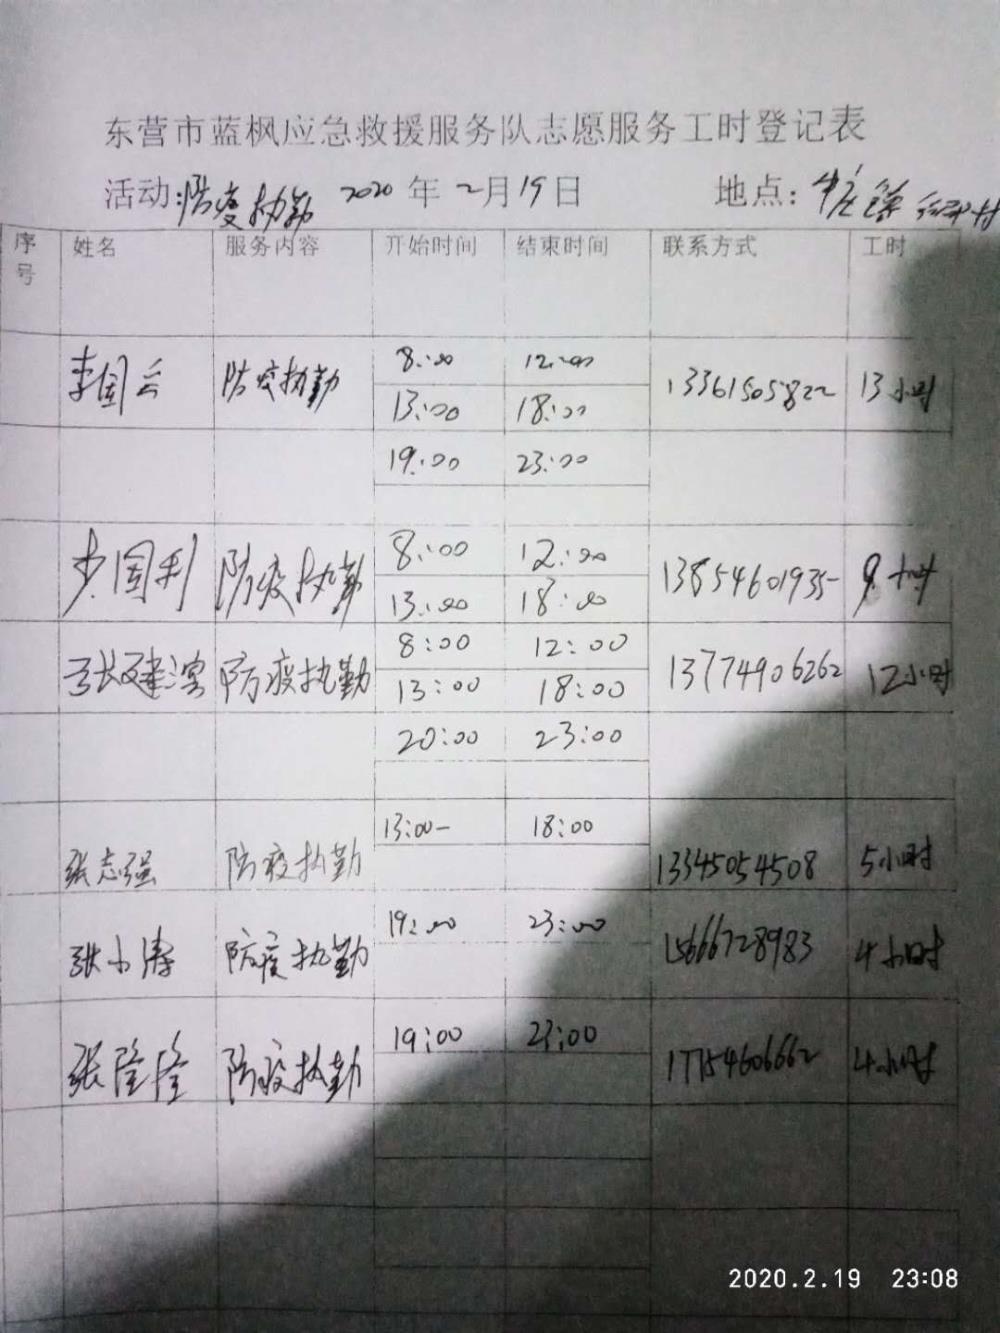 东营市蓝枫应急救援服务队志愿服务工时登记表
活动:防疫执勤 2020年2月19日 地点:牛庄镇
序号 姓名 服务内容 开始时间 结束时间 联系方式 工时
李国云 防疫执勤 8:00 12:00 13361505822 13小时
13:00 18:00
19:00 23:00
国利 防疫执勤 8:00 12:00 13854601935 9小时
13:00 18:00
张建滨 防疫执勤 8:00 12:00 13774906262 12小时
13:00 18:00
20:00 23:00
张志强 防疫执勤 13:00- 18:00 13345054508 5小时
张小涛 防疫执勤 19:00 23:00 15666728983 4小时
张隆隆 防疫执勤 19:00 23:00 17154606662 4小时
2020.2.19 23:08